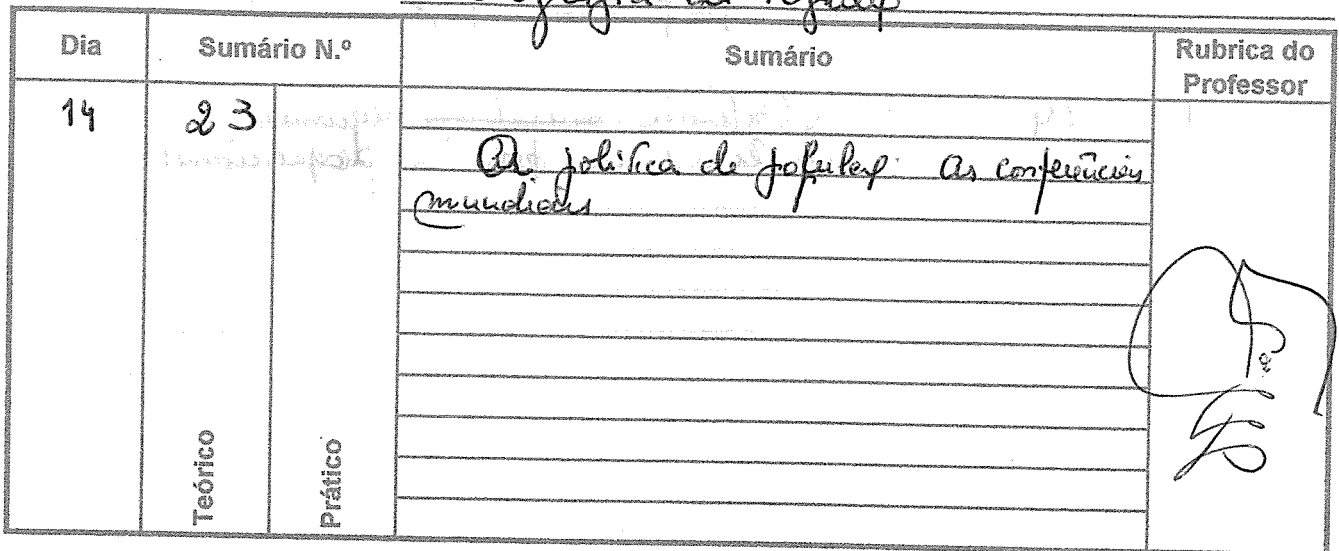 Geografia da População
Dia
Sumário N.º
Sumário
Rubrica do
Professor
14
23
As política de população. As conferências
mundiais
Teórico
Prático